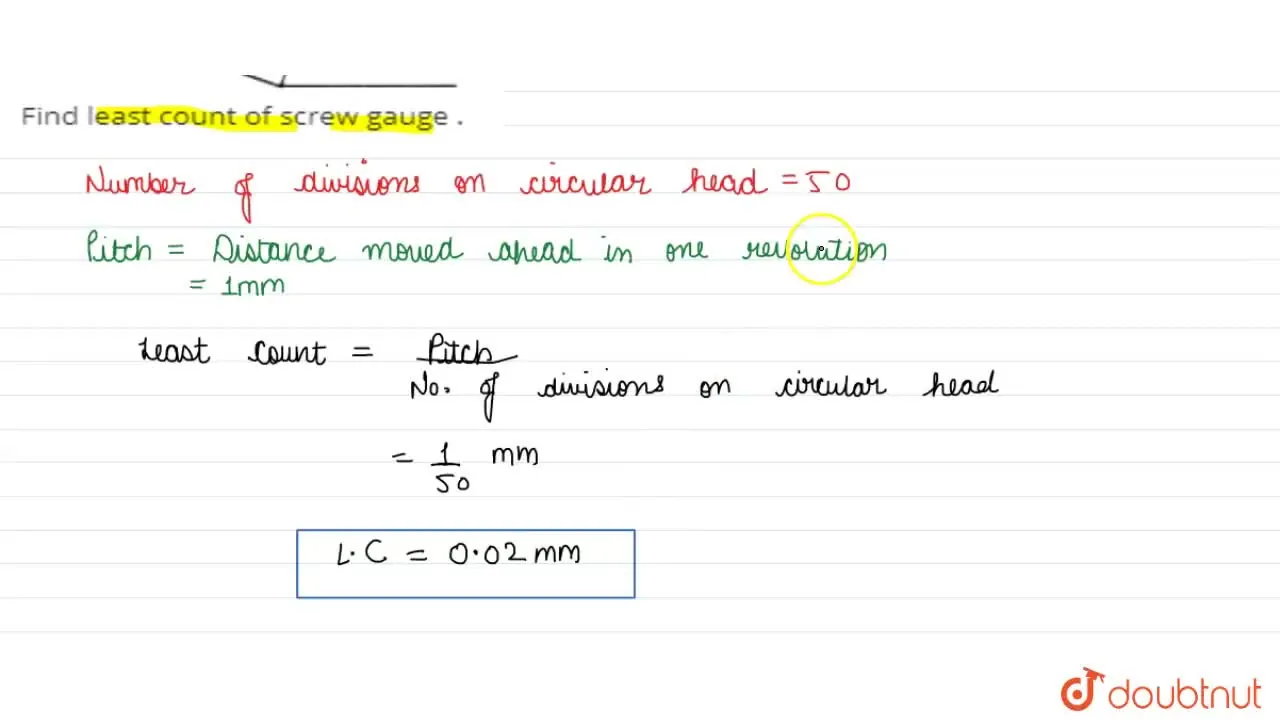 Find least count of screw gauge .
Number of divisions on circular head = 50
Pitch = Distance moved ahead in one revolution
= 1mm
Least count = Pitch
No. of divisions on circular head
= 1 mm
50
L.C = 0.02 mm
doubtnut